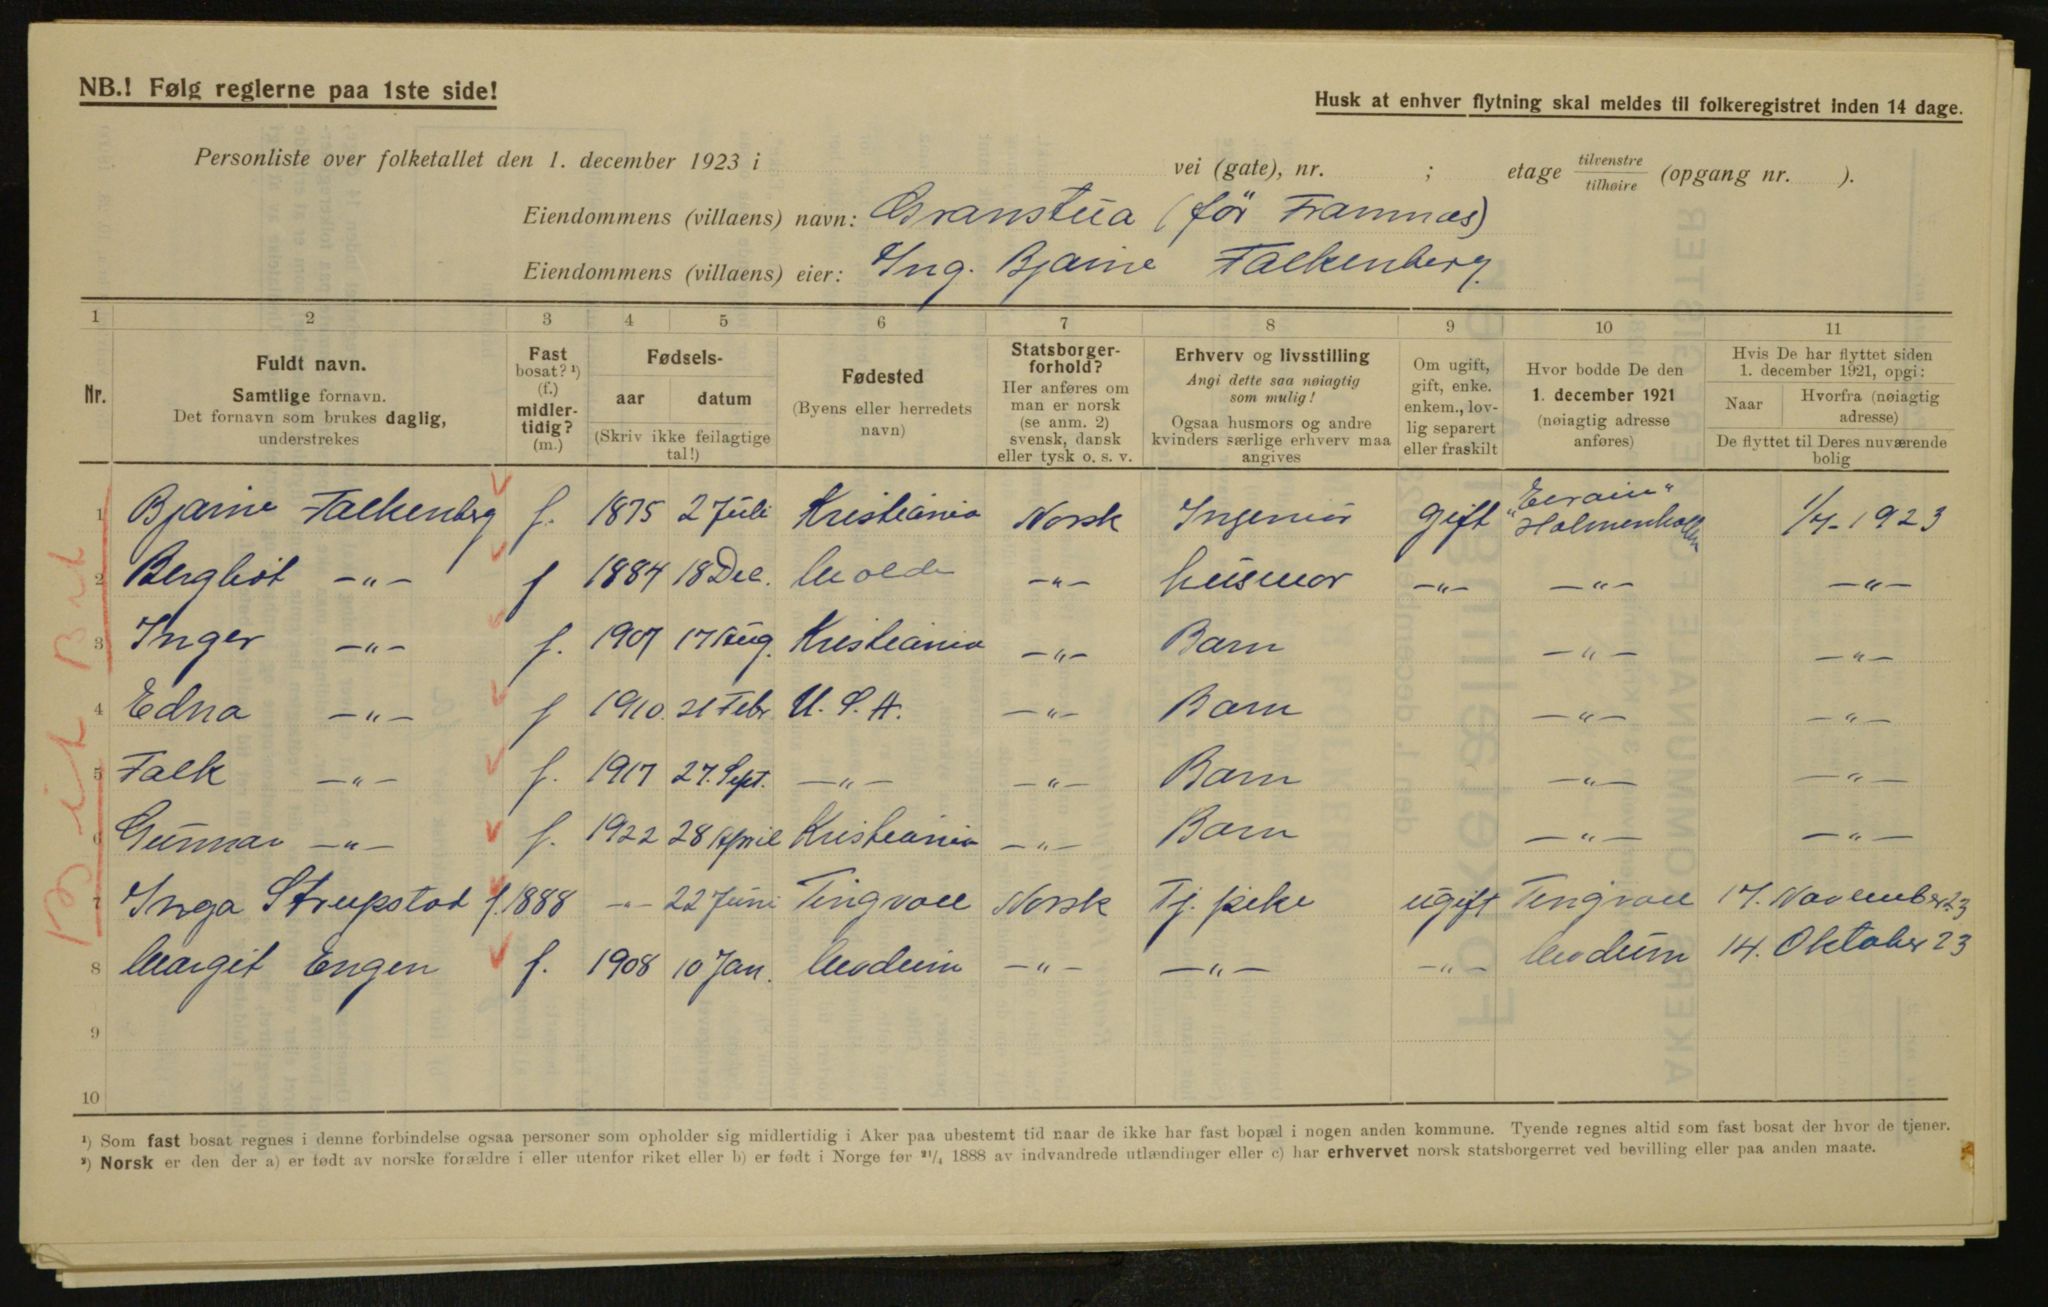 NB.! Følg reglerne paa 1ste side!
Husk at enhver flytning skal meldes til folkeregistret inden 14 dage.
Personliste over folketallet den 1. december 1923 i vei (gate), nr. ; etage tilvenstre tilhøire (opgang nr. ).
Eiendommens (villaens) navn: Granstua (før Framnæs)
Eiendommens (villaens) eier: Ing. Bjarne Falkenberg.
1 2 3 4 5 6 7 8 9 10 11
Nr.
Fuldt navn.
Samtlige fornavn.
Det fornavn som brukes daglig,
understrekes
Fast
bosat? ¹)
(f.)
midler-
tidig?
(m.)
Fødsels-
aar datum
(Skriv ikke feilagtige
tal!)
Fødested
(Byens eller herredets
navn)
Statsborger-
forhold?
Her anføres om
man er norsk
(se anm. 2)
svensk, dansk
eller tysk o. s. v.
Erhverv og livsstilling
Angi dette saa nøiagtig
som mulig!
Ogsaa husmors og andre
kvinders særlige erhverv maa
angives
Om ugift,
gift, enke.
enkem., lov-
lig separert
eller fraskilt
Hvor bodde De den
1. december 1921
(nøiagtig adresse
anføres)
Hvis De har flyttet siden
1. december 1921, opgi:
Naar Hvorfra (nøiagtig
adresse)
De flyttet til Deres nuværende
bolig
1 Bjarne Falkenberg f. 1875 2 Juli Kristiania Norsk Ingeniør gift Holmenkollen 1/7-1923
2 Bergliot —„— f 1884 18 Dec. Molde —„— husmor —„— —„— —„—
3 Inger —„— f. 1907 17 Aug. Kristiania —„— Barn —„— —„—
4 Edna —„— f 1910 21 Febr U. S. A. —„— Barn —„— —„—
5 Falk —„— f. 1917 27. Sept. —„— —„— Barn —„— —„—
6 Gunnar —„— f. 1922 28 April Kristiania —„— Barn —„— —„—
7 Inga Strupstad f. 1888 —„— 22 Juni Tingvoll Norsk Tj. pike ugift Tingvoll 17. November 23
8 Margit Engen f. 1908 10 Jan. Modum —„— —„— —„— Modum 14. Oktober 23
9
10
¹) Som fast bosat regnes i denne forbindelse ogsaa personer som opholder sig midlertidig i Aker paa ubestemt tid naar de ikke har fast bopæl i nogen anden kommune. Tyende regnes altid som fast bosat der hvor de tjener.
²) Norsk er den der a) er født av norske forældre i eller utenfor riket eller b) er født i Norge før ²¹/₄ 1888 av indvandrede utlændinger eller c) har erhvervet norsk statsborgerret ved bevilling eller paa anden maate.